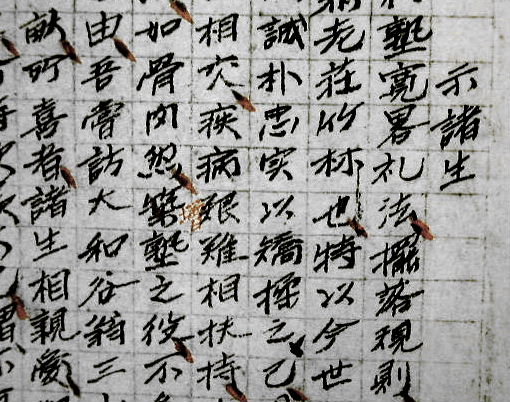 示諸生
塾寛畧礼法擺落規則
老荘竹林也特以今世
誠朴忠実以矯揉之已
相交疾病艱難相扶持
如骨肉然増塾之役不
由吾嘗訪大和谷翁三
所喜者諸生相親愛